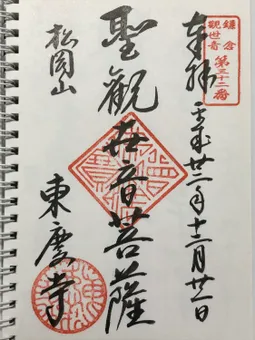 鎌倉
觀世音
第三十二番
奉拜 平成廿二年十二月廿一日
聖觀世音菩薩
松岡山
東慶寺